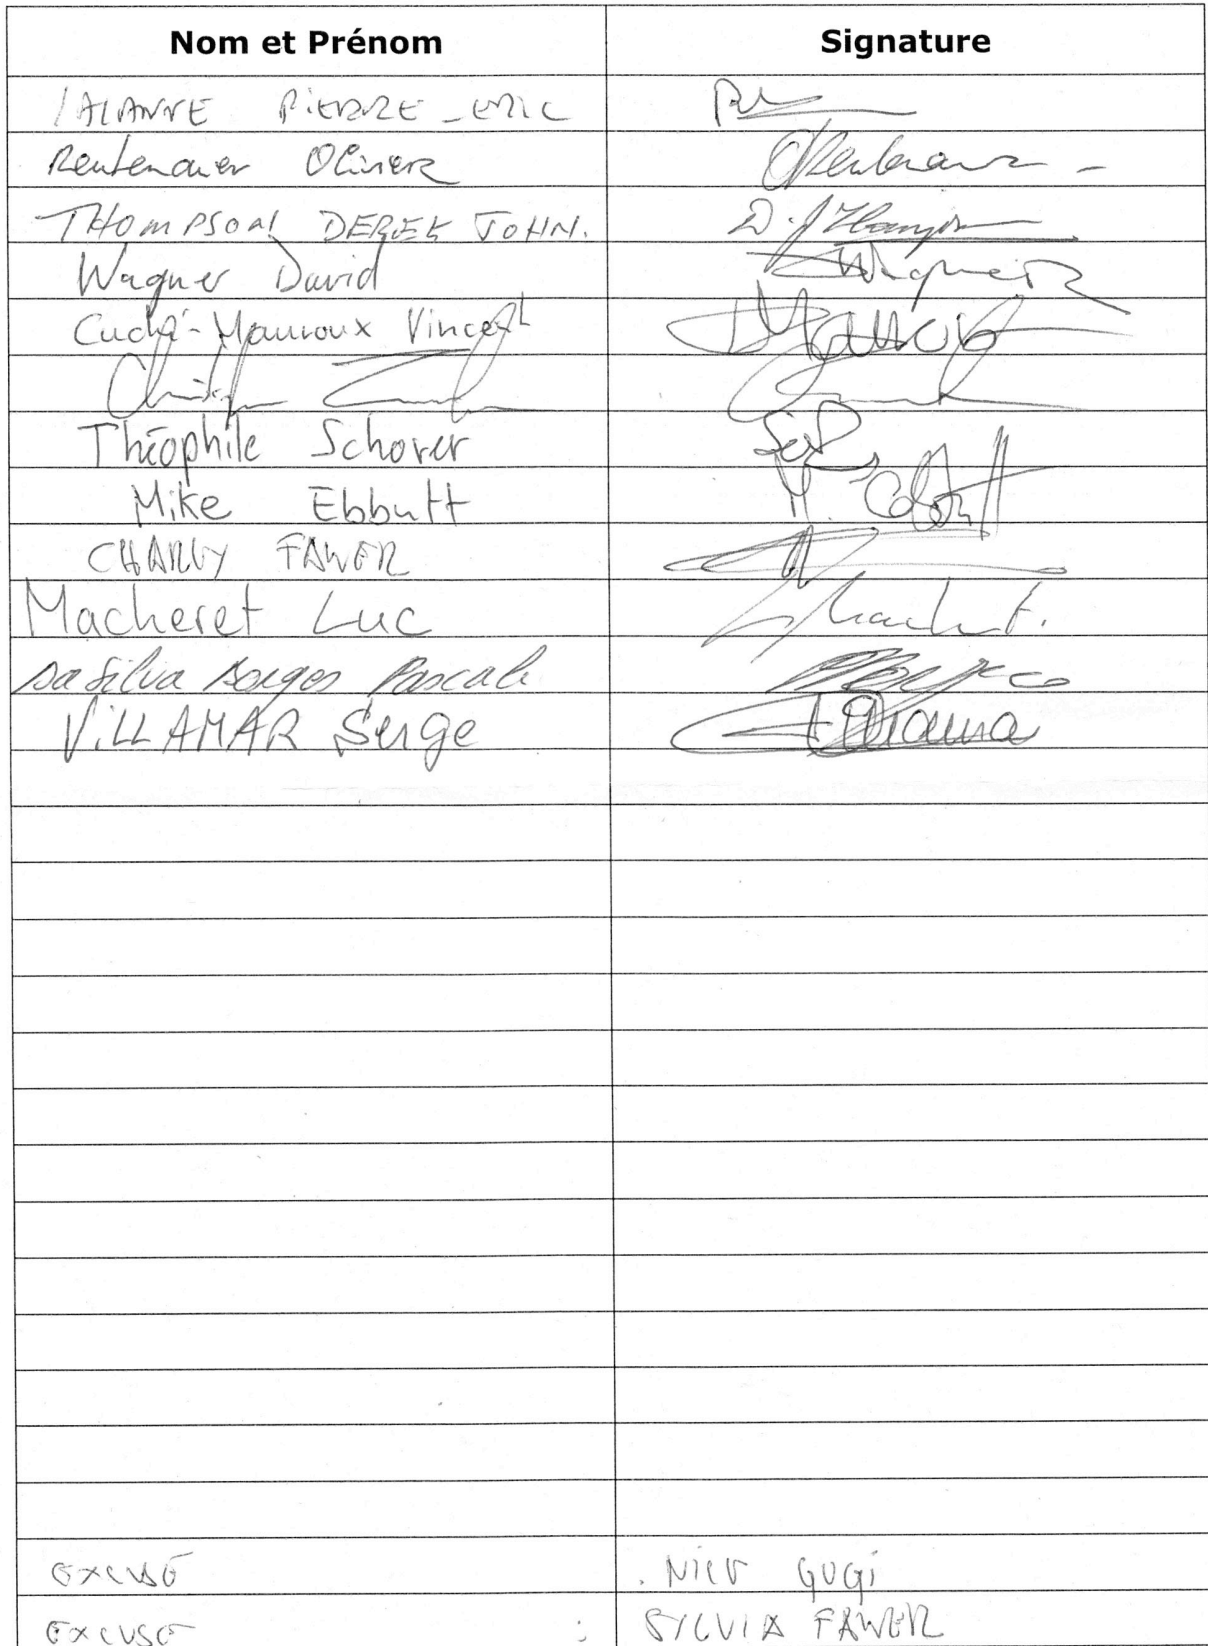 Nom et Prénom Signature
LALANNE PIERRE-ERIC
Reutenauer Olivier
THOMPSON DEREK JOHN. D. J Thompson
Wagner David Wagner
Cuche-Mauroux Vincent
Théophile Schorer
Mike Ebbutt M. Ebbutt
CHARLY FAWER
Macheret Luc L Macheret.
Da Silva Borges Pascale
ViLLAMAR Serge
EXCUSÉ . NICO GUGi
EXCUSE : SYLVIA FAWER